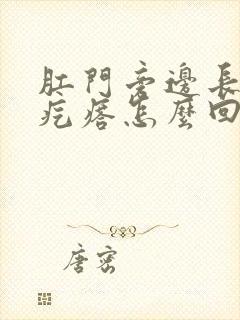 肛門旁邊長
疙瘩怎麼回
唐密